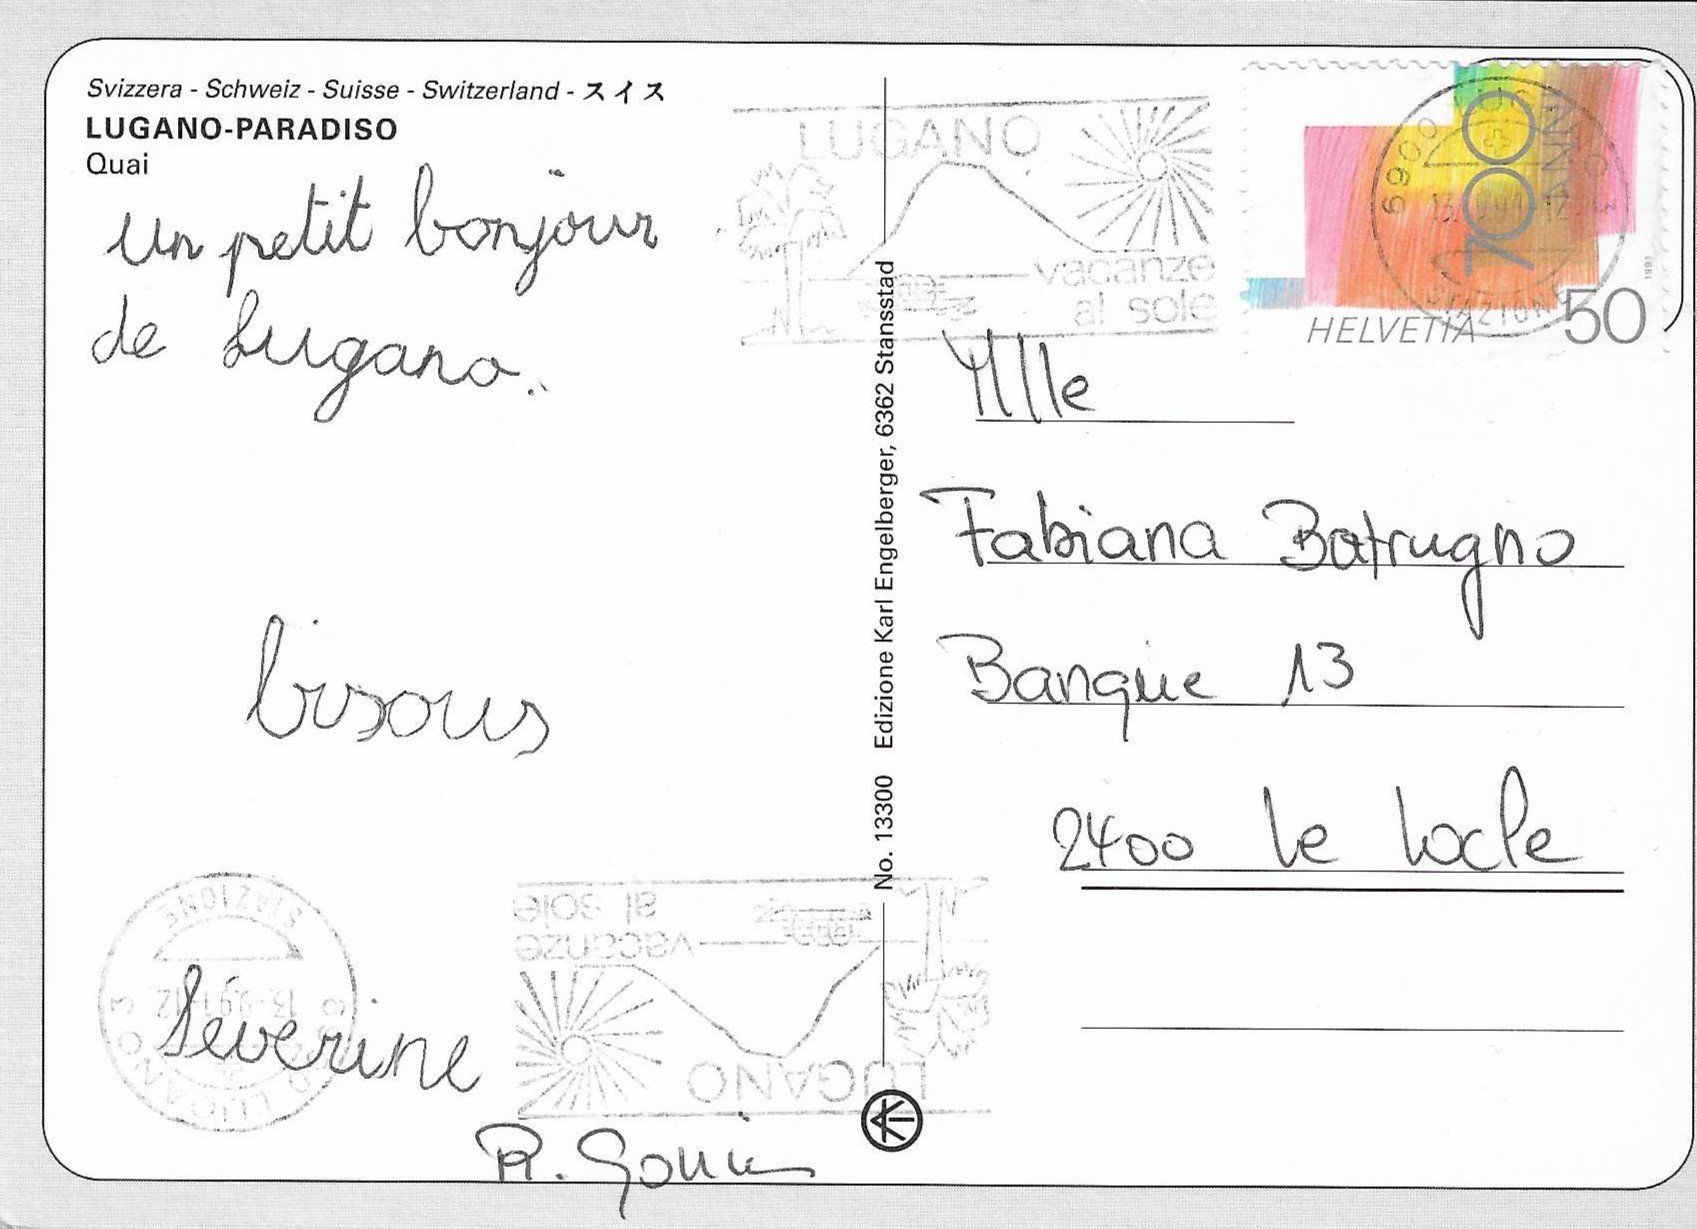 Svizzera - Schweiz - Suisse - Switzerland - スイス
LUGANO-PARADISO
Quai
Un petit bonjour
de Lugano.
bisous
Séverine
R.
No. 13300 Edizione Karl Engelberger, 6362 Stansstad
LUGANO
vacanze
al sole
6900 LUGANO
STAZIONE
700
ANNI
1991
HELVETIA 50
Mlle
Fabiana Batrugno
Banque 13
2400 Le Locle
STAZIONE
6900 LUGANO
al sole
vacanze
LUGANO